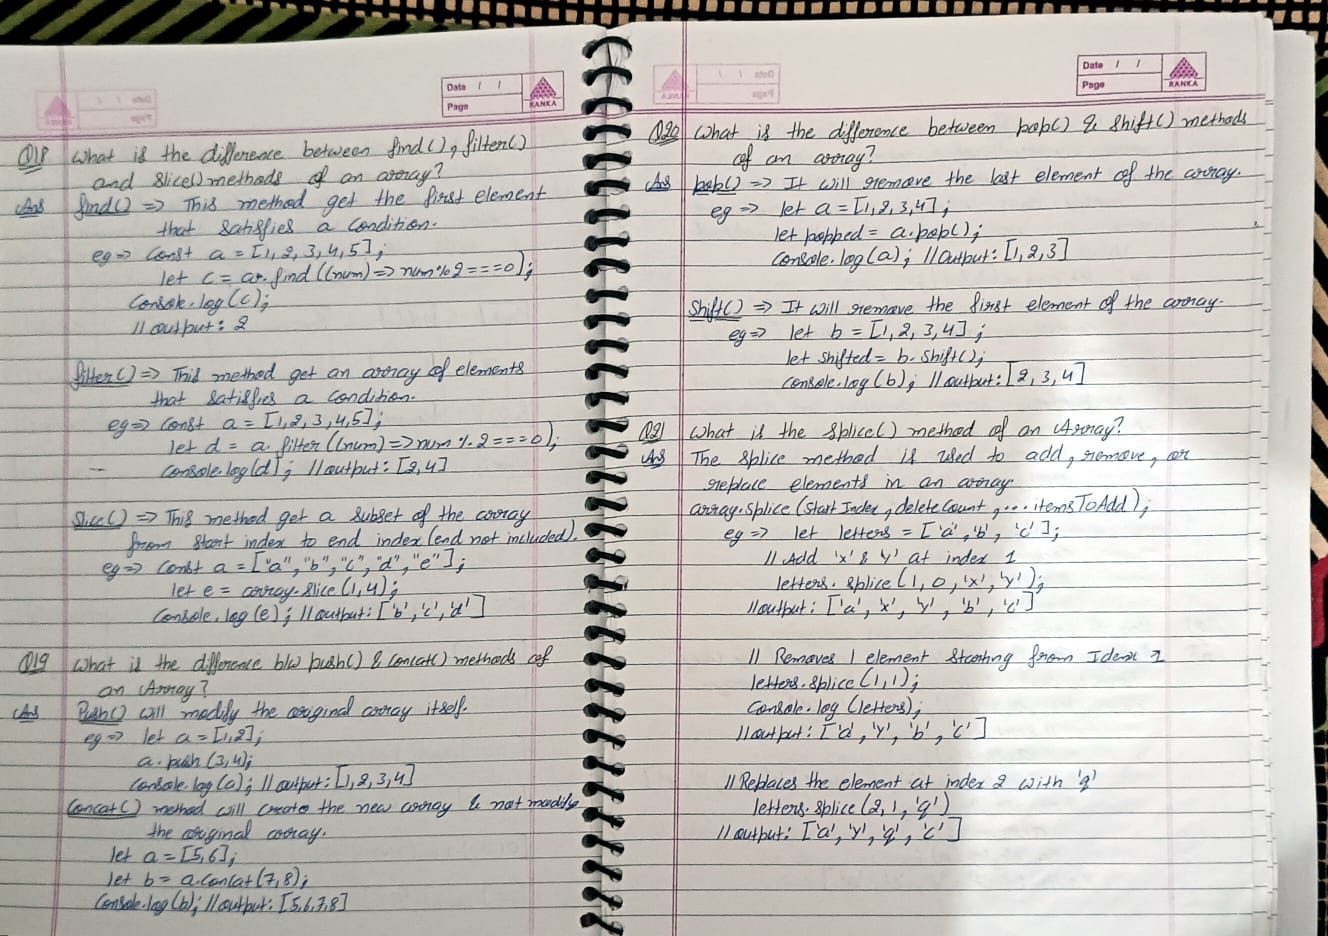 Date / /
Page
RANKA
Q18 What is the difference between find(), filter()
and slice() methods of an array?
Ans find() => This method get the first element
that satisfies a condition.
eg => const a = [1,2,3,4,5];
let c = ar.find((num)=>num%2===0);
Console.log(c);
// output: 2
filter() => This method get an array of elements
that satisfies a condition.
eg => const a = [1,2,3,4,5];
let d = a.filter((num)=>num%2===0);
console.log(d); //output: [2,4]
Slice() => This method get a subset of the array
from start index to end index (end not included).
eg => const a = ["a", "b", "c", "d", "e"];
let e = array.slice(1,4);
Console.log(e); //output: ['b','c','d']
Q19 What is the difference b/w push() & concat() methods of
an Array?
Ans Push() will modify the original array itself.
eg => let a = [1,2];
a.push(3,4);
console.log(a); // output: [1,2,3,4]
Concat() method will create the new array & not modify
the original array.
let a = [5,6];
let b = a.concat(7,8);
Console.log(b); //output: [5,6,7,8]
Date / /
Page
RANKA
Q20 What is the difference between pop() & shift() methods
of an array?
Ans pop() => It will remove the last element of the array.
eg => let a = [1,2,3,4];
let popped = a.pop();
console.log(a); //Output: [1,2,3]
Shift() => It will remove the first element of the array.
eg => let b = [1,2,3,4];
let shifted = b.shift();
console.log(b); //output: [2,3,4]
Q21 What is the splice() method of an Array?
Ans The splice method is used to add, remove, or
replace elements in an array.
array.splice(Start Index, deleteCount, ... itemsToAdd);
eg => let letters = ['a', 'b', 'c'];
// Add 'x' & 'y' at index 1
letters.splice(1, 0, 'x', 'y');
//output: ['a', 'x', 'y', 'b', 'c']
// Removes 1 element starting from Idex 1
letters.splice(1,1);
Console.log(letters);
//output: ['a', 'y', 'b', 'c']
// Replaces the element at index 2 with 'q'
letters.splice(2, 1, 'q')
//output: ['a', 'y', 'q', 'c']